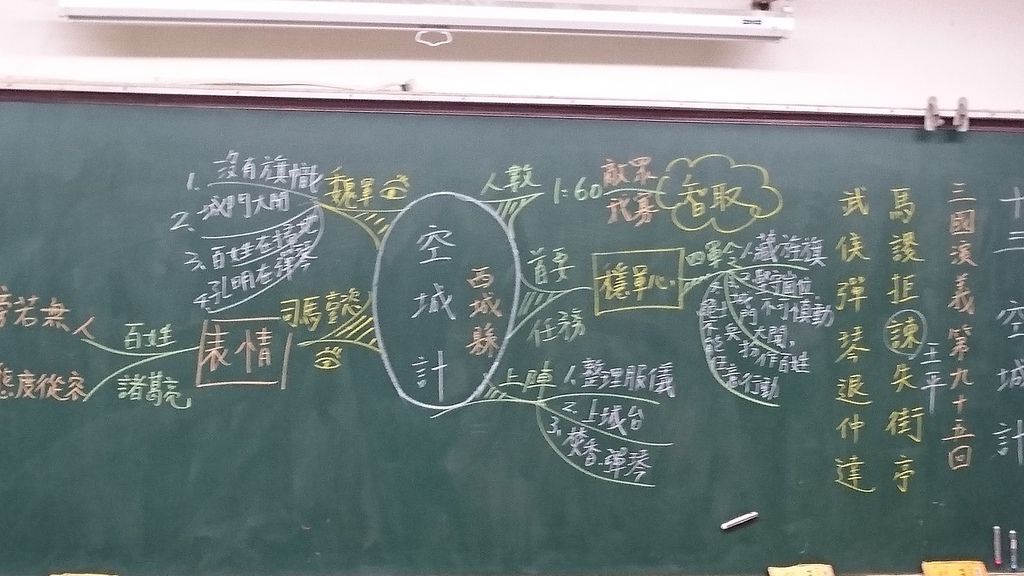 十三 空城計
三國演義第九十五回
馬謖拒諫失街亭
王平
武侯彈琴退仲達
空城計
西城縣
人數
1:60
敵眾
我寡
智取
首要
任務
穩軍心
四軍令
1.藏旌旗
2.堅守崗位
不可慎動
大開,
百姓
行動
上陣
1.整理服儀
2.上城台
3.焚香彈琴
魏軍
1.沒有旗幟
2.城門大開
3.百姓在掃地
4.孔明在彈琴
司馬懿
表情
百姓
旁若無人
諸葛亮
態度從容